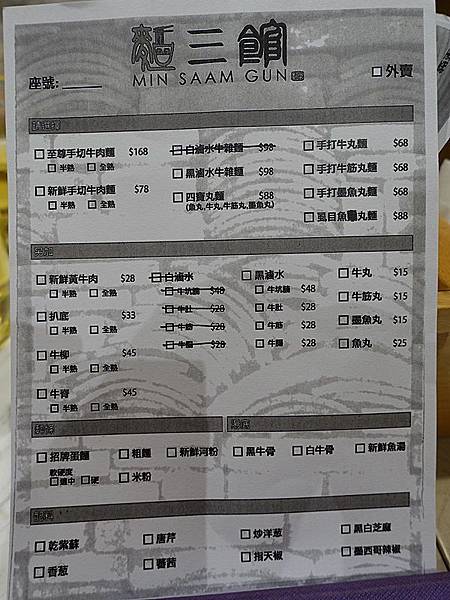 麵三館
MIN SAAM GUN
座號:
外賣
至尊手切牛肉麵 $168
半熟 全熟
新鮮手切牛肉麵 $78
半熟 全熟
白滷水牛雜麵 $98
黑滷水牛雜麵 $98
四寶丸麵 $88
(魚丸,牛丸,牛筋丸,墨魚丸)
手打牛丸麵 $68
手打牛筋丸麵 $68
手打墨魚丸麵 $68
虱目魚丸麵 $88
新鮮黃牛肉 $28
半熟 全熟
扒底 $33
半熟 全熟
牛柳 $45
半熟 全熟
牛脊 $45
半熟 全熟
白滷水
牛坑腩 $48
牛肚 $28
牛筋 $28
牛腸 $28
黑滷水
牛坑腩 $48
牛肚 $28
牛筋 $28
牛腸 $28
牛丸 $15
牛筋丸 $15
墨魚丸 $15
魚丸 $25
招牌蛋麵
軟硬度
適中 硬
粗麵
米粉
新鮮河粉
黑牛骨
白牛骨
新鮮魚湯
乾紫蘇
唐芹
炒洋葱
黑白芝麻
香葱
蕃茜
指天椒
墨西哥辣椒